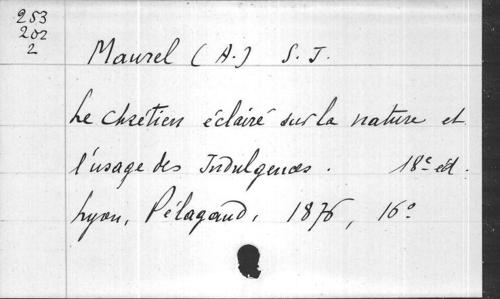 253
202
2
Maurel (A.) S. J.
Le Chrétien éclairé sur la nature et
l'usage des Indulgences. 18e éd.
Lyon, Pélagaud, 1876, 16°